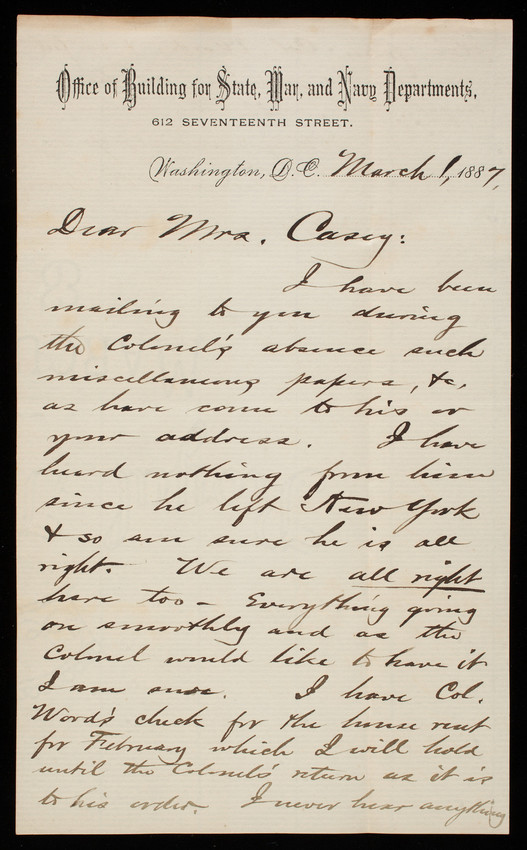 Office of Building for State, War, and Navy Departments,
612 SEVENTEENTH STREET.
Washington, D.C. March 1, 1887,
Dear Mrs. Casey:
I have been
mailing to you during
the Colonel's absence such
miscellaneous papers, &c,
as have come to his or
your address. I have
heard nothing from him
since he left New York
& so am sure he is all
right. We are all right
here too - Everything going
on smoothly and as the
Colonel would like to have it
I am sure. I have Col.
Word's check for the house rent
for February which I will hold
until the Colonel's return as it is
to his order. I never hear anything